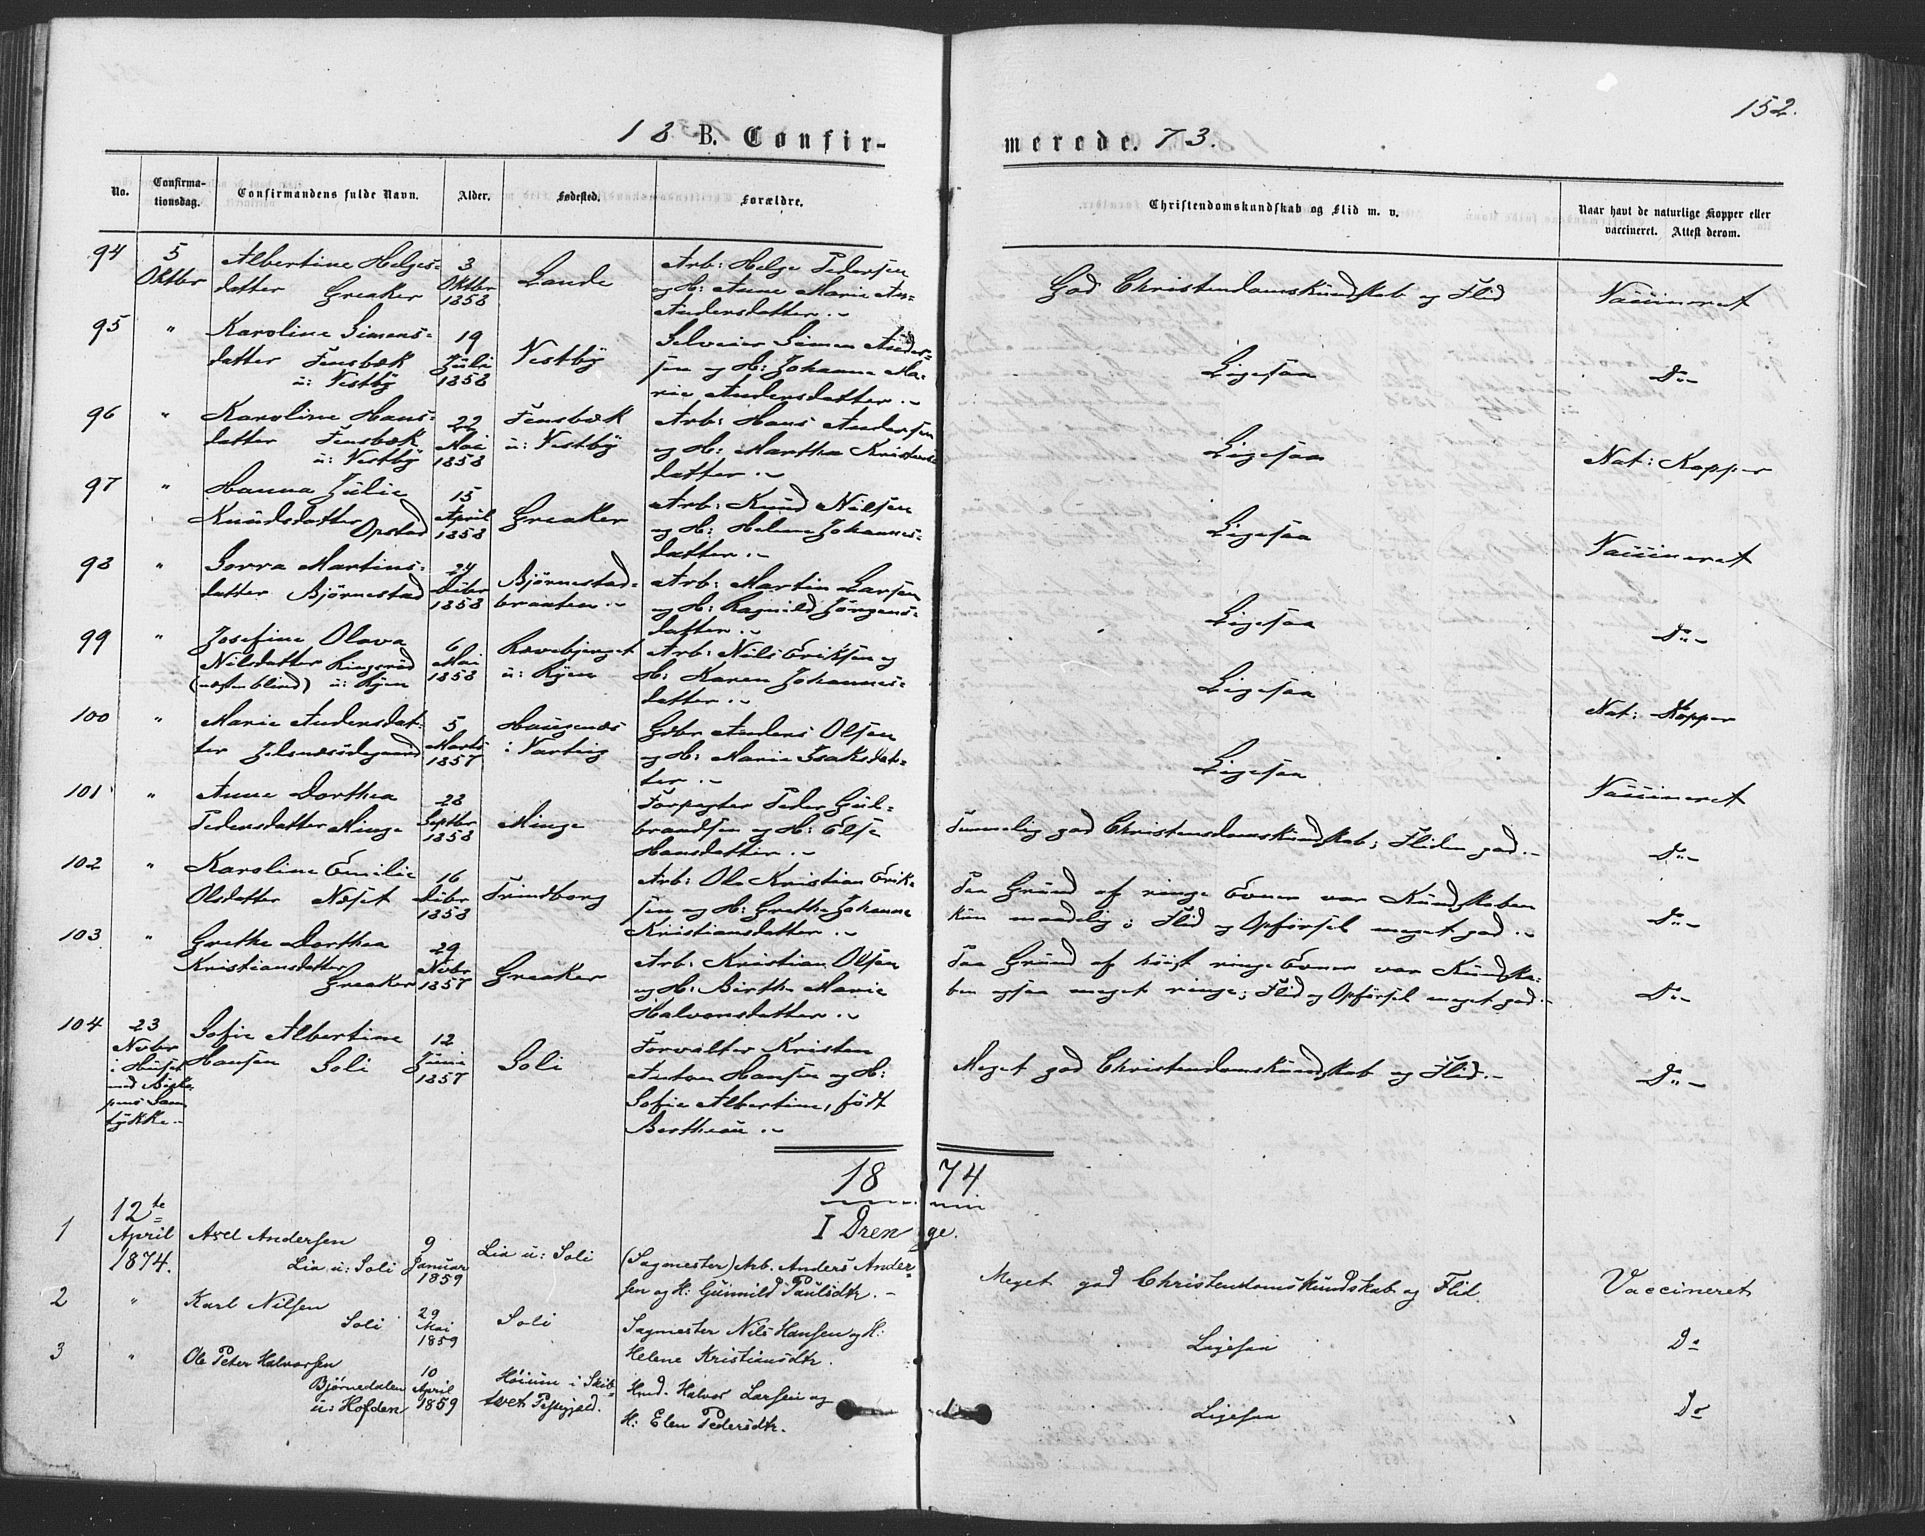 152.
18 B. Confir-
merede. 73.
No.
Confirma-
tionsdag.
Confirmandens fulde Navn.
Alder.
Fødested.
Forældre.
Christendomskundskab og Flid m. v.
Naar havt de naturlige Kopper eller
vaccineret. Attest derom.
94
5
Oktbr
Albertine Helges-
datter Greaker
3
Oktbr
1858
Lande
Arb: Helge Pedersen
og H: Anne Marie An-
Andersdatter .-
God Christendomskundskab og Flid
Vaccineret
95
"
Karoline Simens-
datter Fensbæk
u: Vestby
19
Juli
1858
Vestby
Selveier Simen Anders-
sen og H: Johanne Ma-
rie Andersdatter .-
Ligesaa
Do -
96
"
Karoline Hans-
datter Fensbæk
u: Vestby
22
Mai
1858
Fensbæk
u: Vestby
Arb: Hans Andersen
og H: Martha Kristens
datter .-
Ligesaa
Nat: Kopper
97
"
Hanna Julie
Knudsdatter
Opstad
15
April
1858
Greaker
Arb: Knud Nilsen
og H: Helene Johannes-
datter .-
Ligesaa
Vaccineret
98
"
Gorra Martins-
datter Bjørnestad
24
Debr
1858
Bjørnestad-
braaten .-
Arb: Martin Larsen
og H: Ragnild Jørgens-
datter .-
Ligesaa
Do -
99
"
Josefine Olava
Nilsdatter Kingsrød
(næsten blind) u: Ryen
6
Mai
1858
Rævebjerget
u: Ryen
Arb: Nils Eriksen og
H: Karen Johannes-
datter .-
Ligesaa
Nat: Kopper
100
"
Marie Andersdat-
ter Jelsnæsødegaard
5
Marts
1857
Haugenæs
i Varteig
Gbr Anders Olsen
og H: Marie Isaksdat-
ter .-
Ligesaa
Vaccineret
101
"
Anne Dorthea
Pedersdatter Minge
28
Septbr
1858
Minge
Forpagter Peder Gul-
brandsen og H: Else
Hansdatter .-
Temmelig god Christendomskundskab; Fliden god .-
Do -
102
"
Karoline Emilie
Olsdatter Næset
16
Debr
1858
Trindborg
Arb: Ole Kristian Erik-
sen og H: Grethe Johanne
Kristiansdatter .-
Paa Grund af ringe Evner var Kundskaben
kun maadelig; Flid og Opførsel meget god .-
Do -
103
"
Grethe Dorthea
Kristiansdatter
Greaker
29
Novbr
1857
Greaker
Arb: Kristian Olsen
og H: Birthe Marie
Halvorsdatter .-
Paa Grund af høist ringe Evner var Kundska-
ben ogsaa meget ringe; Flid og Opførsel meget god .-
Do -
104
23
Novbr
i Huset
med Bisko-
pens Sam-
tykke .-
Sofie Albertine
Hansen Soli
12
Juni
1857
Soli
Forvalter Kristen
Anton Hansen og H:
Sofie Albertine, født
Bertheau .-
Meget god Christendomskundskab og Flid .-
Do -
18 74
I Drenge.
1
12te
April
1874.
Axel Andersen
Lia u: Soli
9
Januar
1859
Lia u: Soli
(Sagmester) Arb. Anders Ander-
sen og H: Gunnild Paulsdtr. -
Meget god Christendomskundskab og Flid.
Vaccineret
2
"
Karl Nilsen
Soli
29
Mai
1859
Soli
Sagmester Nils Hansen og H:
Helene Kristiansdtr.
Ligesaa
Do
3
"
Ole Peter Halvorsen
Bjørnedalen
u: Hofden
10
April
1859
Høium i Skib-
tvet Præstegjæld.
Hmd. Halvor Larsen og
H: Elen Pedersdtr.
Ligesaa
Do